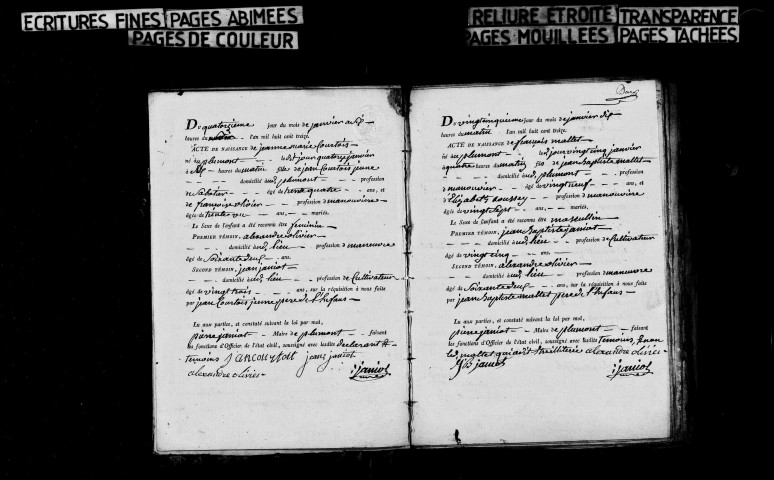 ECRITURES FINES
PAGES ABIMEES
PAGES DE COULEUR
RELIURE ETROITE
TRANSPARENCE
PAGES MOUILLEES
PAGES TACHEES
Du quatorzième jour du mois de janvier a dix
heures du l'an mil huit cent treize.
ACTE DE NAISSANCE de jeanne marie Courtois
né à plumont le dit jour quatorze janvier
à six heures du matin fille de jean Courtois jeune
domicilié à plumont profession
de Sabotier âgé de trente quatre ans, et
de françoise olivier profession manouvrière
âgée de trente un ans, mariés.
Le Sexe de l'enfant a été reconnu être féminin
PREMIER TÉMOIN, alexandre olivier
domicilié audit lieu profession de manouvre
âgé de Soixante deux ans.
SECOND TÉMOIN, jean janiot
domicilié audit lieu profession de Cultivateur
âgé de vingt trois ans, sur la réquisition à nous faite
par jean Courtois jeune pere de l'enfant
Lu aux parties, et constaté suivant la loi par moi,
pierre janiot Maire de plumont faisant
les fonctions d'Officier de l'état civil, soussigné avec lesdits declarant et
temoins jean janiot
alexandre olivier
janiot
Du vingt cinquième jour du mois de janvier dix
heures du matin l'an mil huit cent treize.
ACTE DE NAISSANCE de françois mallet
né à plumont le dit jour vingt cinq janvier
à quatre heures du matin fils de jean Baptiste mallet
domicilié à plumont profession
de manouvrier âgé de vingt neuf ans, et
d'Elizabet profession manouvrière
âgée de vingt sept ans, mariés.
Le Sexe de l'enfant a été reconnu être masculin
PREMIER TÉMOIN, jean Baptiste janiot
domicilié audit lieu profession de Cultivateur
âgé de vingt cinq ans.
SECOND TÉMOIN, alexandre olivier
domicilié audit lieu profession manouvre
âgé de Soixante deux ans, sur la réquisition à nous faite
par jean Baptiste mallet pere de l'enfant
Lu aux parties, et constaté suivant la loi par moi,
pierre janiot Maire de plumont faisant
les fonctions d'Officier de l'état civil, soussigné avec lesdits temoins, et non
le dit mallet qui a dit être illiteré alexandre olivier
JB janiot
janiot